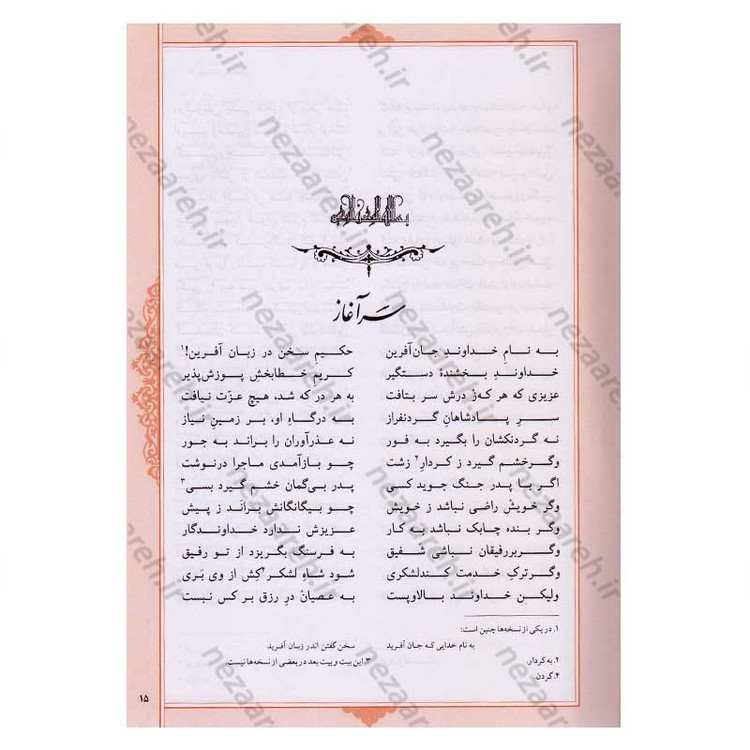 بسم الله الرحمن الرحیم
سرآغاز
به نامِ خداوندِ جان‌آفرین حکیمِ سخن در زبان آفرین!۱
خداوندِ بخشندهٔ دستگیر کریمِ خطابخشِ پوزش‌پذیر
عزیزی که هر کز درش سر بتافت به هر در که شد، هیچ عزّت نیافت
سرِ پادشاهانِ گردنفراز به درگاهِ او، بر زمینِ نیاز
نه گردنکشان را بگیرد به فور نه عذرآوران را براند به جور
وگر خشم گیرد ز کردارِ۲ زشت چو بازآمدی ماجرا درنوشت
اگر با پدر جنگ جوید کسی پدر بی‌گمان خشم گیرد بسی۳
وگر خویش راضی نباشد ز خویش چو بیگانگانش براند ز پیش
وگر بنده چابک نباشد به کار عزیزش ندارد خداوندگار
وگر بررفیقان نباشی شفیق به فرسنگ بگریزد از تو رفیق
وگر ترکِ خدمت کند لشکری شود شاهِ لشکر۴کِش از وی بَری
ولیکن خداوندِ بالاوپست به عصیان درِ رزق بر کس نبست
۱. در یکی از نسخه‌ها چنین است:
به نام خدایی که جان آفرید سخن گفتن اندر زبان آفرید
۲. به کردار. ۳. این بیت و بیت بعد در بعضی از نسخه‌ها نیست.
۴. گردن.
۱۵
nezaareh.ir
nezaareh.ir
nezaareh.ir
nezaareh.ir
nezaareh.ir
nezaareh.ir